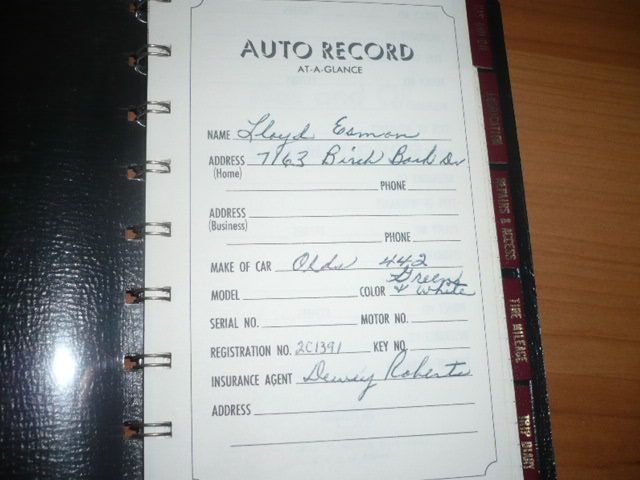 AUTO RECORD
AT-A-GLANCE
NAME Lloyd Esmon
ADDRESS 7163 Birch Bark Dr
(Home)
PHONE
ADDRESS
(Business)
PHONE
MAKE OF CAR Olds 442
MODEL COLOR Green & White
SERIAL NO. MOTOR NO.
REGISTRATION NO. 2C1391 KEY NO.
INSURANCE AGENT Dewey Roberts
ADDRESS
GAS AND OIL
LUBRICATION
REPAIRS & ACCESS.
TIRE MILEAGE
TRIP DIARY